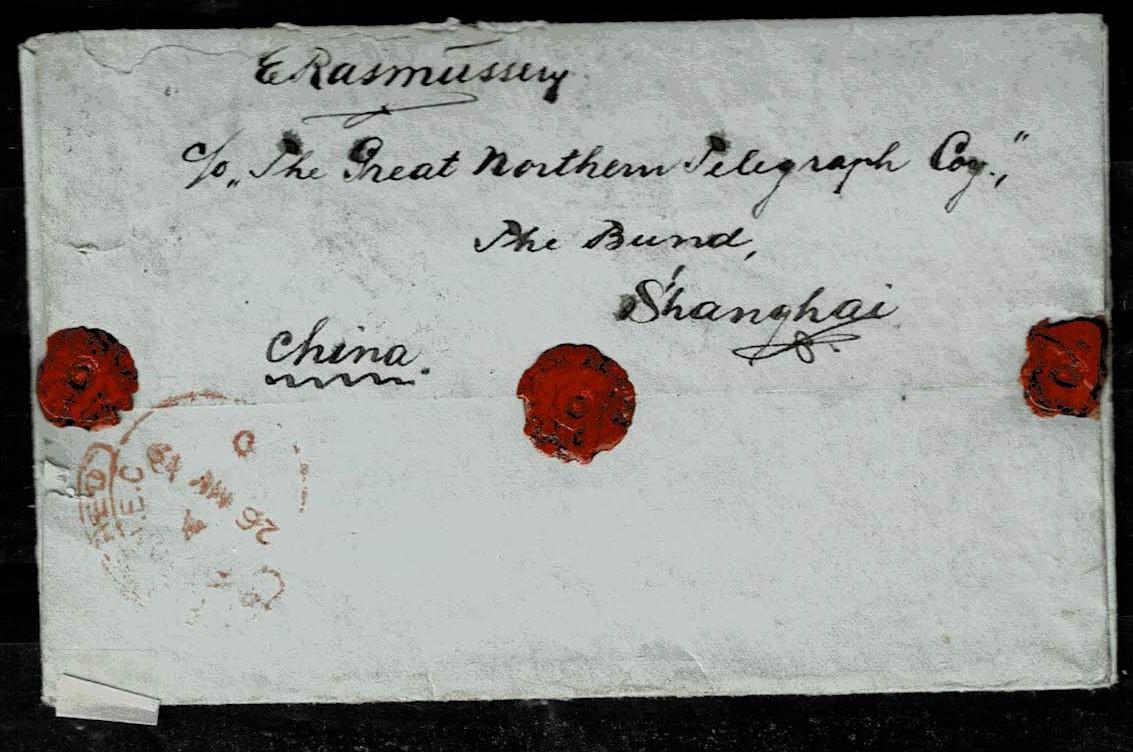 E Rasmüssen
c/o „The Great Northern Telegraph Coy.,"
The Bund,
Shanghai
China.
26 MR
E.C